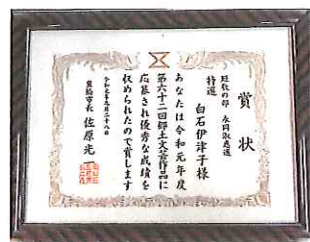 賞状
短歌の部 永岡淑惠選
特選
白石伊津子様
あなたは令和元年度
第六十二回郷土文芸作品に
応募され優秀な成績を
収められたので賞します
令和元年九月二十八日
豊橋市長 佐原光一